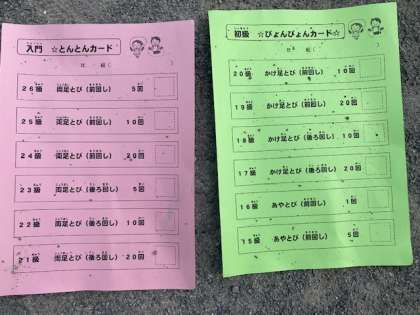 入門 ☆とんとんカード
年 組(
26級 両足とび(前回し) 5回
25級 両足とび(前回し) 10回
24級 両足とび(前回し) 20回
23級 両足とび(後ろ回し) 5回
22級 両足とび(後ろ回し) 10回
21級 両足とび(後ろ回し) 20回
初級 ☆ぴょんぴょんカード☆
年 組(
20級 かけ足とび(前回し) 10回
19級 かけ足とび(前回し) 20回
18級 かけ足とび(後ろ回し) 10回
17級 かけ足とび(後ろ回し) 20回
16級 あやとび(前回し) 1回
15級 あやとび(前回し) 5回